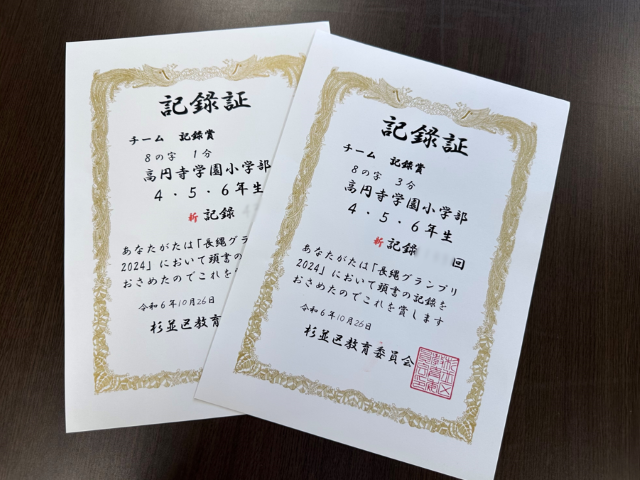 記録証
チーム 記録賞
8の字 1分
高円寺学園小学部
4・5・6年生
新 記録
あなたがたは「長縄グラン
2024」において頭書の
おさめたのでこれを
令和6年10月26日
杉並区教育
記録証
チーム 記録賞
8の字 3分
高円寺学園小学部
4・5・6年生
新 記録 回
あなたがたは「長縄グランプリ
2024」において頭書の記録を
おさめたのでこれを賞します
令和6年10月26日
杉並区教育委員会